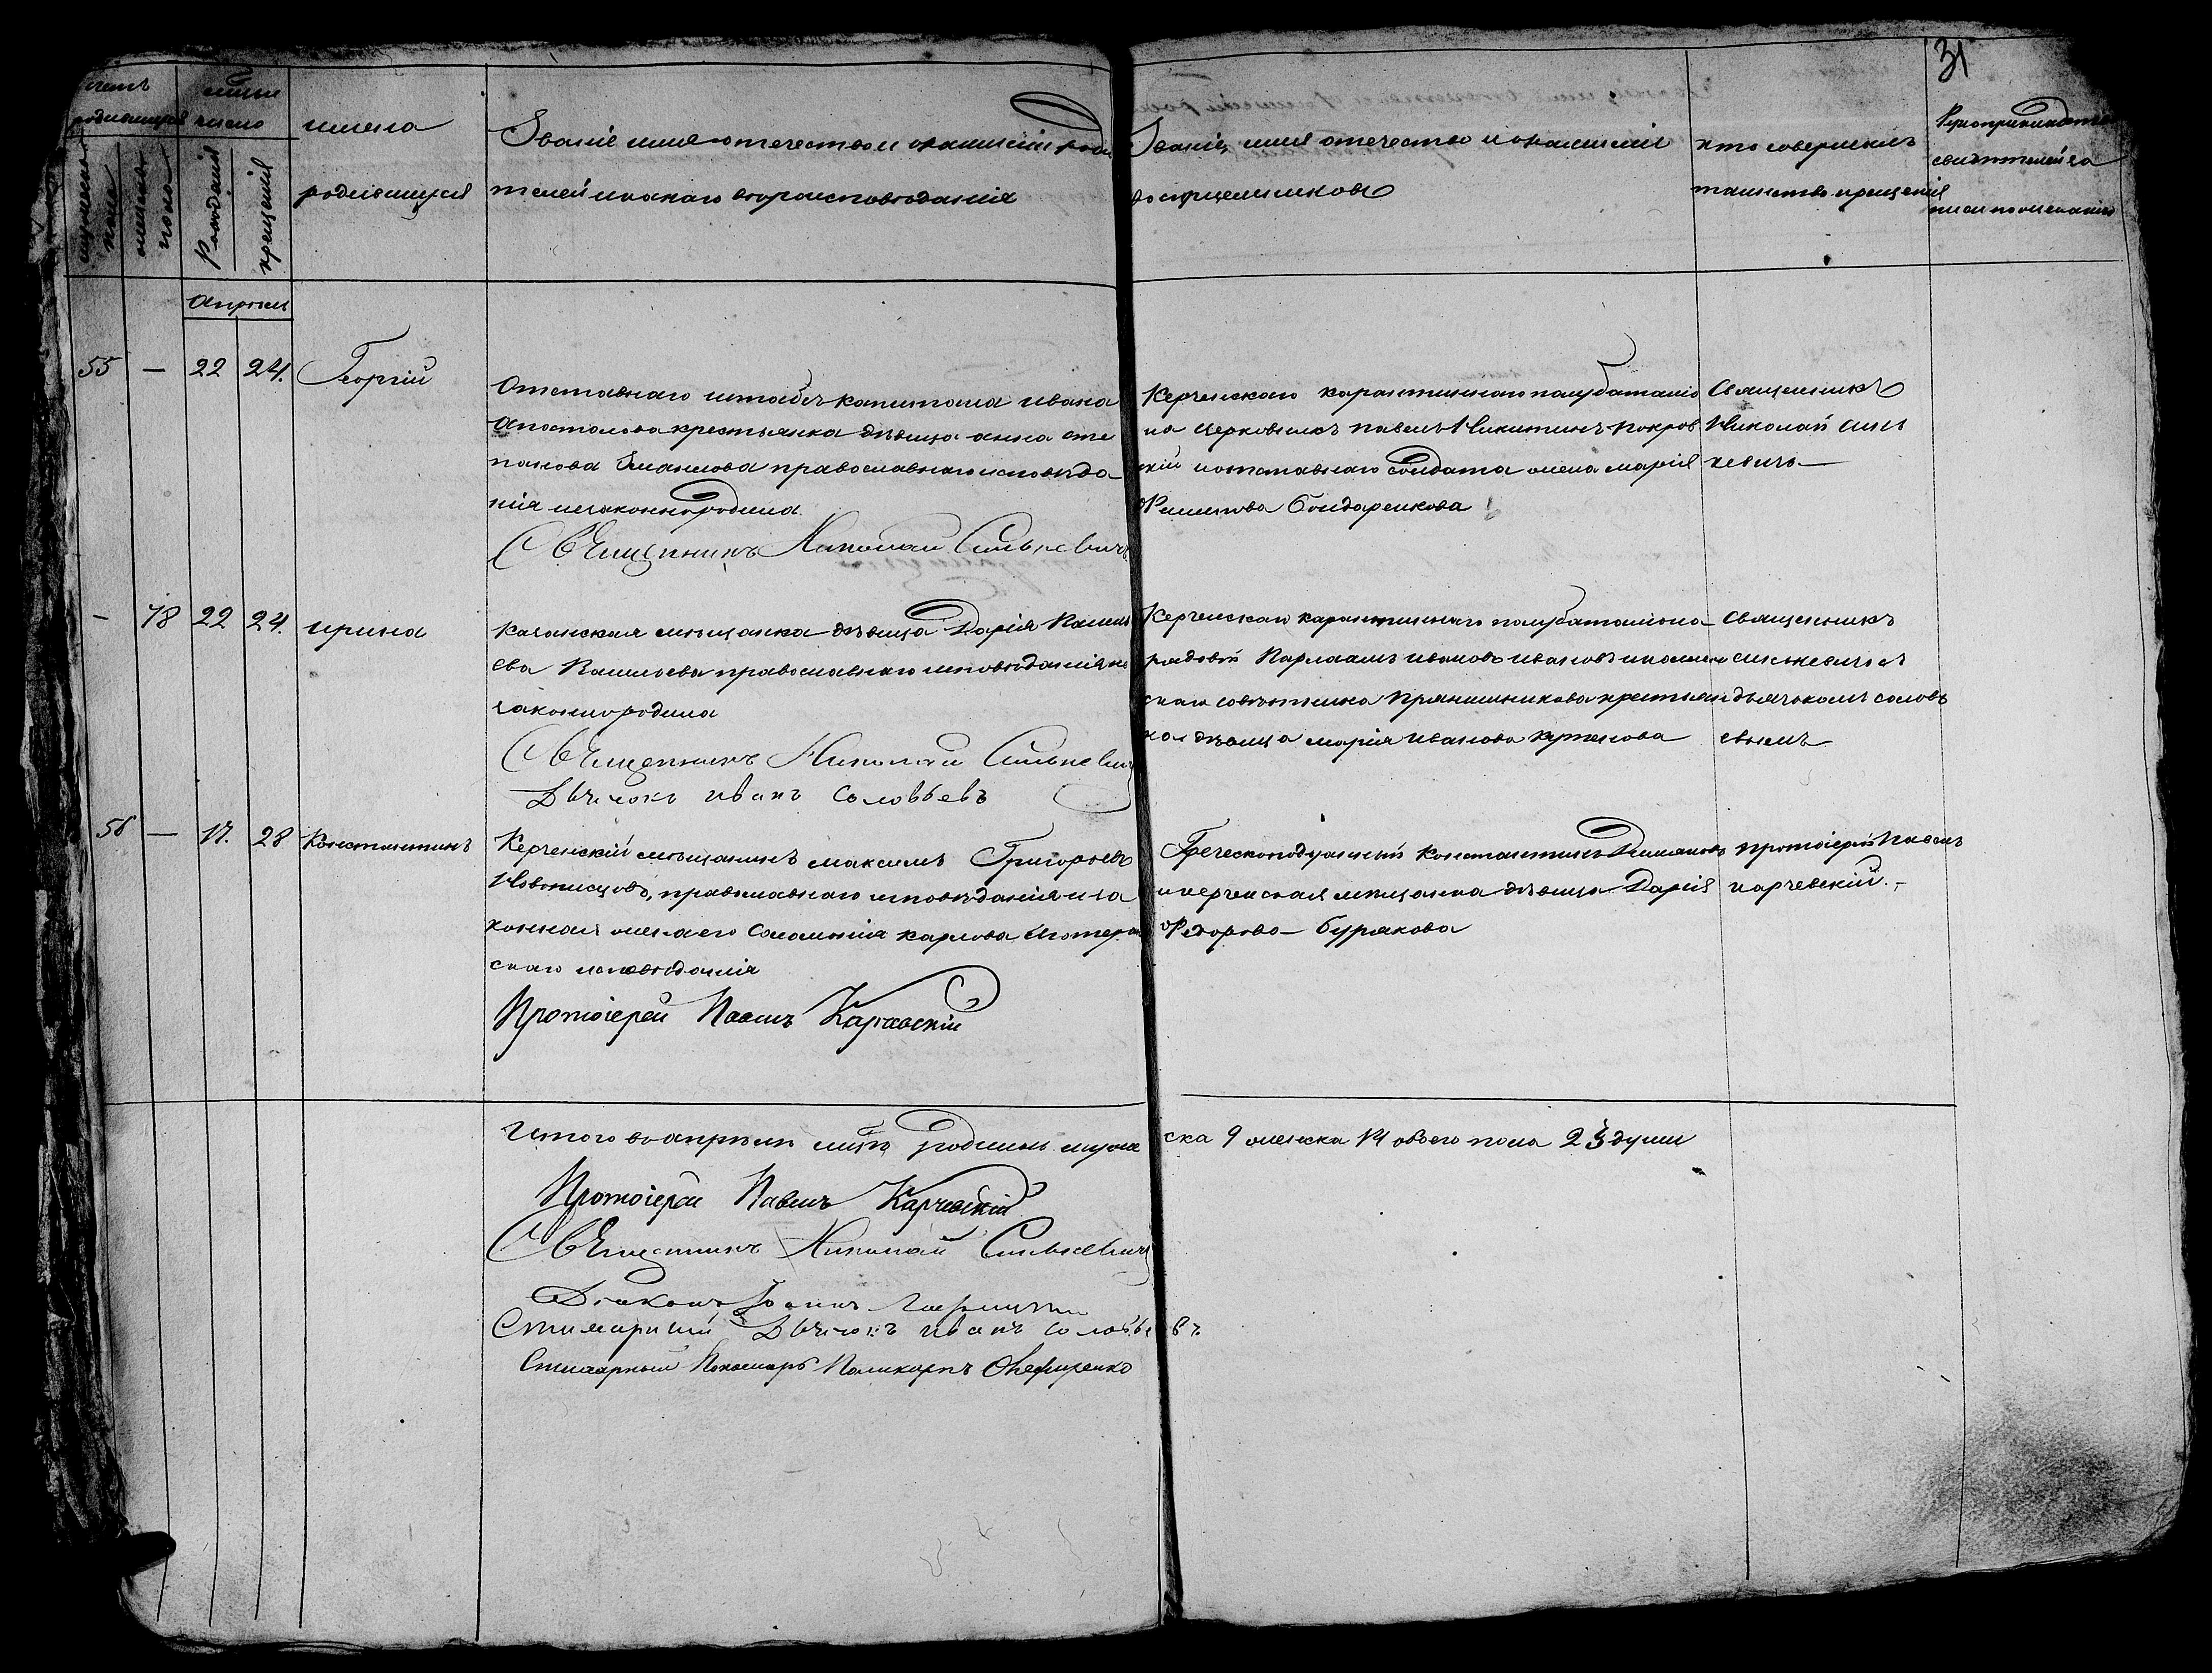 31
счетъ родившихся
мужеска пола
женска пола
мѣсяцъ число
Рожденія
крещенія
имена
родившихся
Званіе имя отечество и фамилія роди
телей и какаго вѣроисповѣданія
Званіе, имя отечество и фамилія
воспріемниковъ
кто совершалъ
таинство крещенія
Рукоприкладство
свидѣтелей за
писи по желанію
Апрѣль
55 — 22 24. Георгій
Отставнаго штабсъ капитана ивана
Апостолова крестьянка дѣвица анна сте
панова православнаго исповѣда
нія незаконнородила
Священникъ Николай Синькевичъ
Керченскаго карантиннаго полубаталіо
на церковникъ павелъ Никитинъ покров
скій и отставнаго солдата жена марія
Филипова Бондаренкова
Священникъ
Николай синь
кевичъ
— 78 22 24. ирина
Казанская мѣщанка дѣвица Дарія
ева Васильева православнаго исповѣданія не
законнородила
Священникъ Николай Синькевичъ
Дьячокъ иванъ Соловьевъ
Керченскаго карантиннаго полубаталіона
рядовой Варлаамъ ивановъ ивановъ и
скаго совѣтника Прянишникова крестьян
кая дѣвица марія иванова
священникъ
синькевичъ съ
дьячкомъ соловь
евымъ
56 — 17. 28 Константинъ
Керченскій мѣщанинъ максимъ Григорьевъ
Новописцовъ, православнаго исповѣданія и за
конная жена его Саломинія карлова лютеран
скаго исповѣданія
Протоіерей Павелъ Карчевскій
Греческоподданный Константинъ
и керченская мѣщанка дѣвица Дарія
Федорова Бурлакова
протоіерей Павелъ
карчевскій.
Итого во апрѣлѣ мцѣ родилось муже
ска 9 женска 14 обоего пола 23 души
Протоіерей Павелъ Карчевскій
Священникъ Николай Синькевичъ
Діаконъ Іоаннъ
Стихарный Дьячокъ иванъ соловьевъ
Стихарный Пономарь Поликарпъ